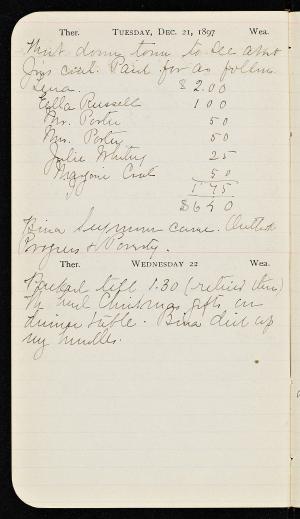 Ther. TUESDAY, DEC. 21, 1897 Wea.
Went down town to see about
Jo's coat. Paid for as follows
Lena. $2.00
Ella Russell 1 00
Mr. Porter 50
Mrs. Porter 50
Julie Whitney 25
Marjorie 50
1 75
$6 40
Bina Seymour came.
Progress & Poverty.
Ther. WEDNESDAY 22 Wea.
till 1.30 (retired then)
We had Christmas gifts on
dinner table. Bina did up
my bundles.